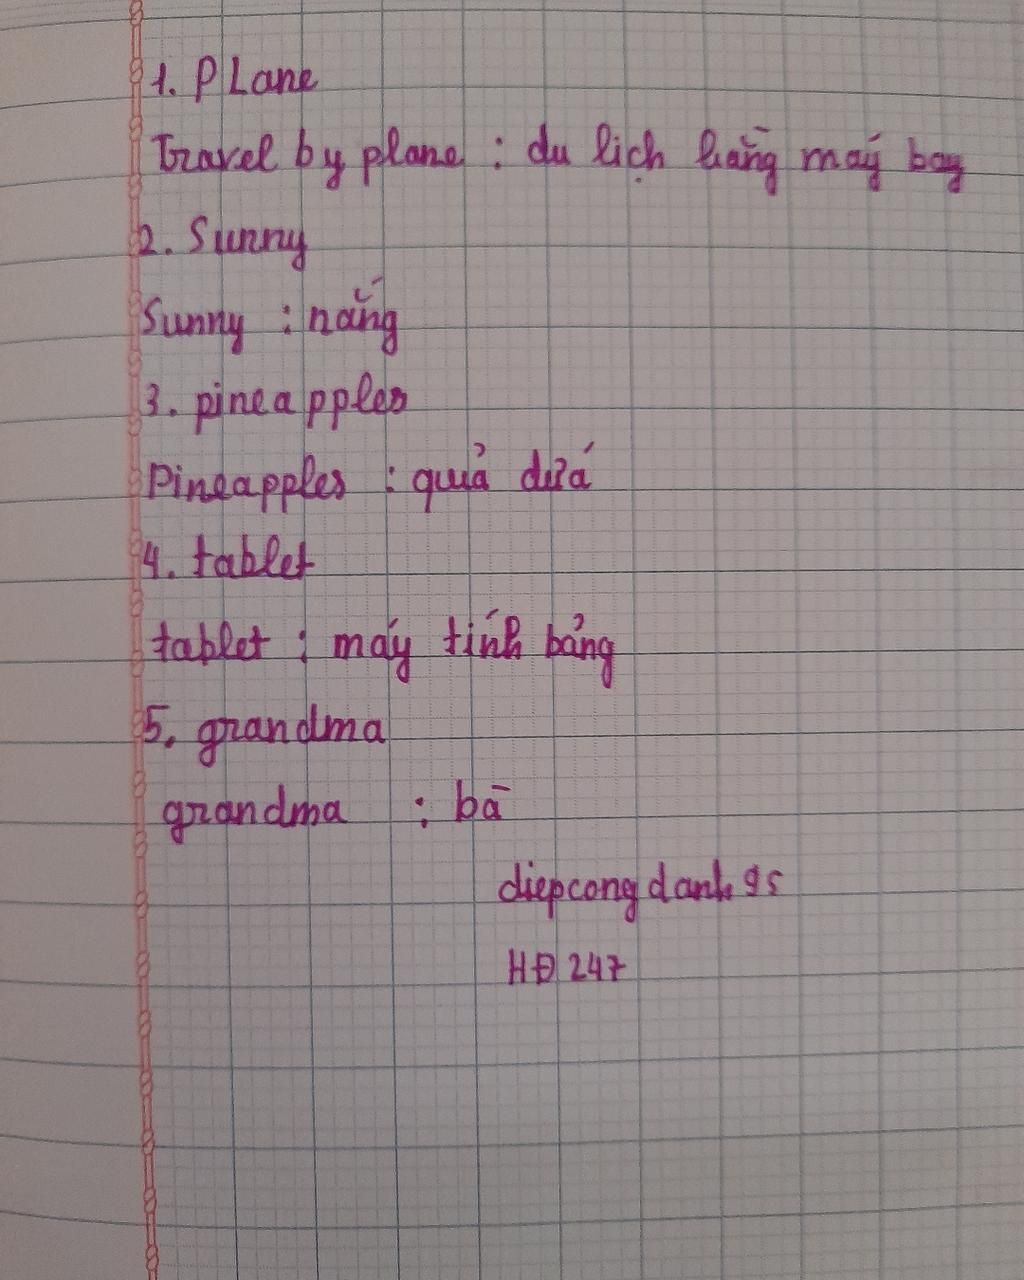 1. PLane
Travel by plane : du lịch bằng máy bay
2. Sunny
Sunny : nắng
3. pineapples
Pineapples : quả dứa
4. tablet
tablet : máy tính bảng
5. grandma
grandma : bà
diepcongdanh95
HĐ 247